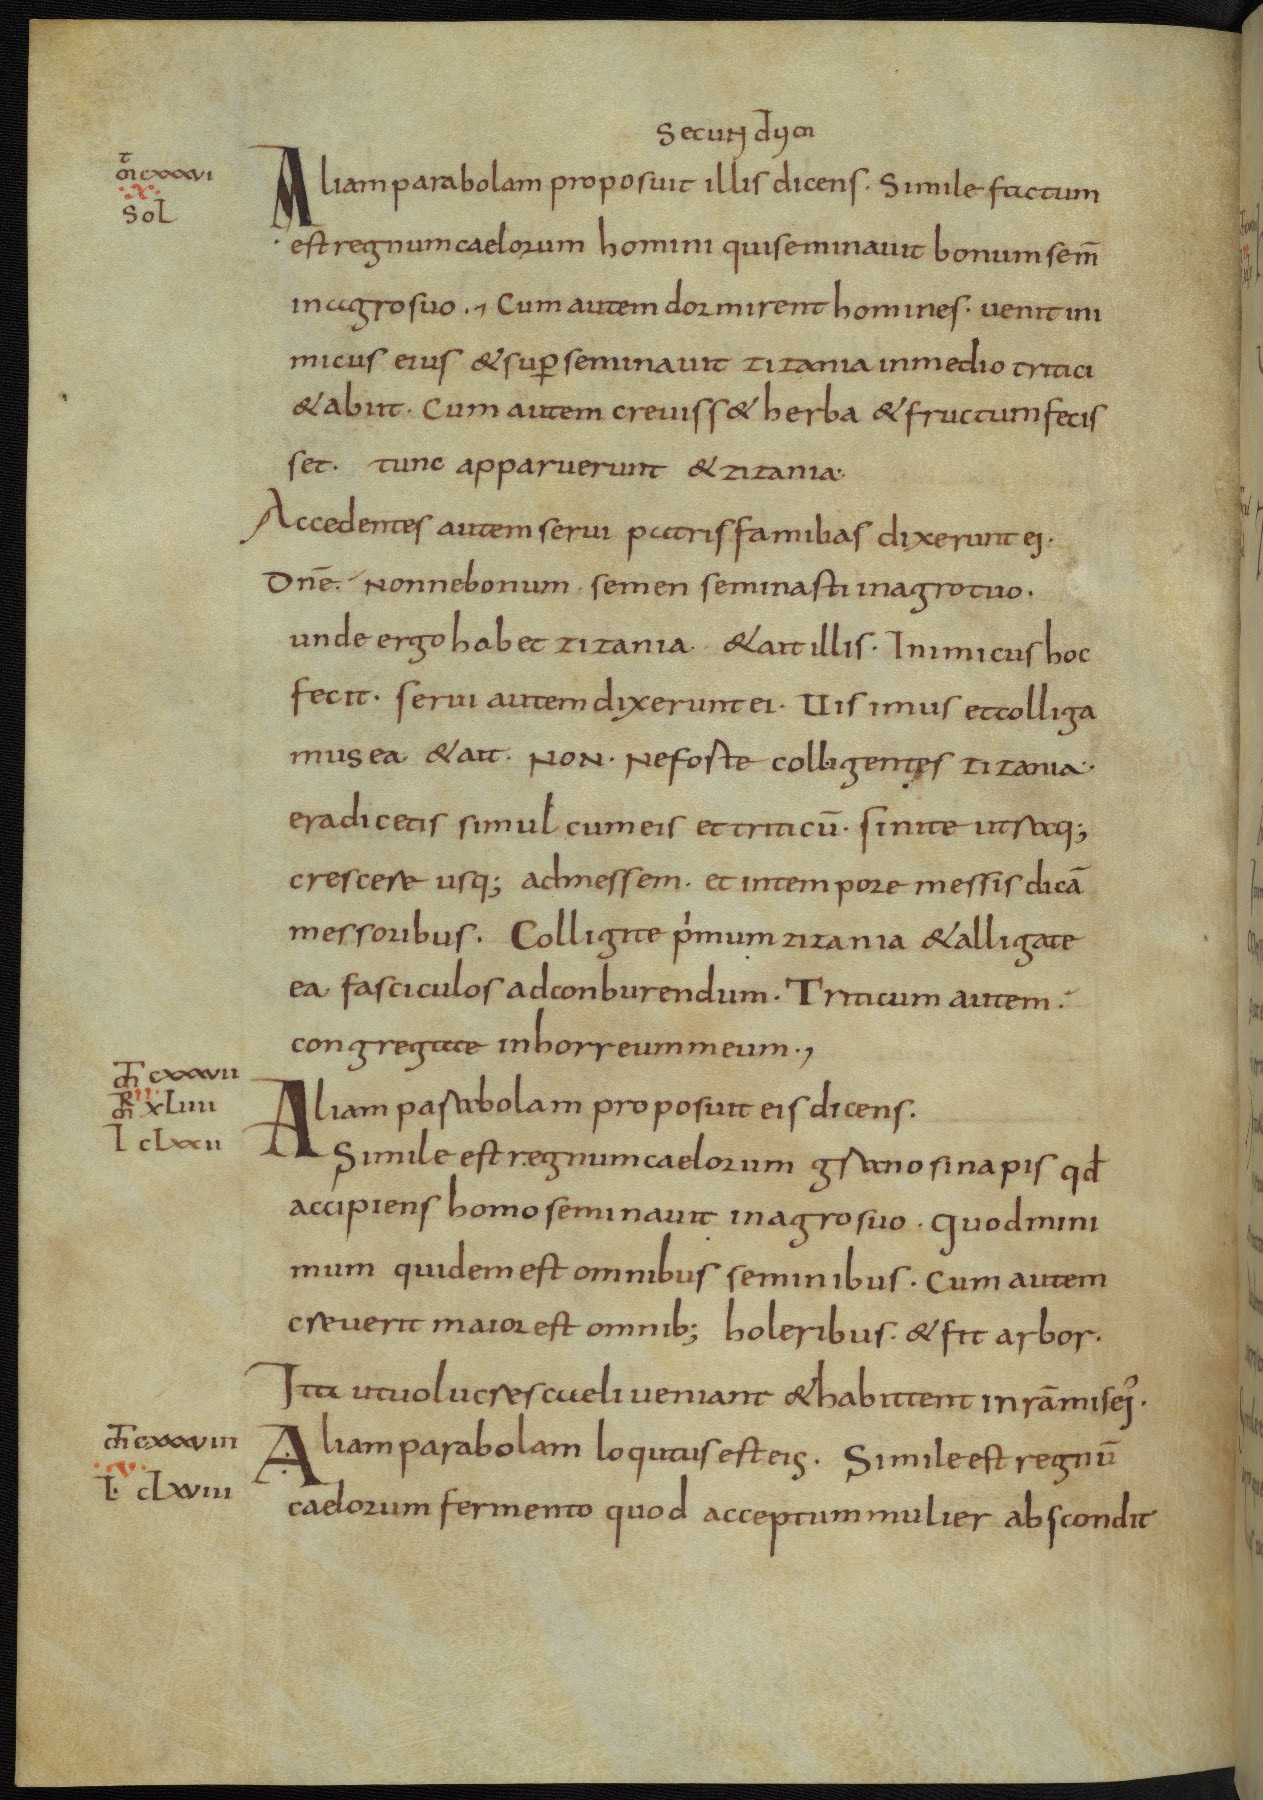 Secundum
mt cxxxvi
x
Sol
Aliam parabolam proposuit illis dicens. Simile factum
est regnum caelorum homini qui seminauit bonum sem̄
in agro suo., Cum autem dormirent homines. uenit ini
micus eius & suꝑseminauit zizania in medio tritici
& abiit. Cum autem creuiss& herba & fructum fecis
set. tunc apparuerunt & zizania.
Accedentes autem serui patris familias dixerunt ei.
Dn̄e. Nonne bonum semen seminasti in agro tuo.
unde ergo habet zizania. & ait illis. Inimicus hoc
fecit. serui autem dixerunt ei. Uis imus et colliga
mus ea & ait. NON. Ne forte colligentes zizania.
eradicetis simul cum eis et triticū. sinite utraq;
crescere usq; ad messem. et in tempore messis dicā
messoribus. Colligite pͥmum zizania & alligate
ea fasciculos ad conburendum. Triticum autem.
congregate in horreum meum.,
mt cxxxvii
ii
mr xLiiii
L cLxxii
Aliam parabolam proposuit eis dicens.
Simile est regnum caelorum grano sinapis qđ
accipiens homo seminauit in agro suo. Quod mini
mum quidem est omnibus seminibus. Cum autem
creuerit maior est omnib; holeribus. & fit arbor.
Ita ut uolucres caeli ueniant & habitent in rāmis eiꝰ.
mt cxxxviii
v
L. cLxviii
Aliam parabolam loqutus est eis. Simile est regnū
caelorum fermento quod acceptum mulier abscondit